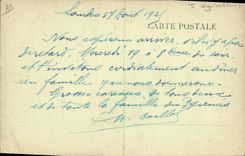 Lourdes 17 Août 192
CARTE POSTALE
Nous espérons arriver, s'il n'y a pas
de retard, Mercredi 19 à 8 heures du soir
et t'invitons cordialement au dîner
en famille que nous donnerons.
Grosses caresses de tous deux
et de toute la famille des Pyrénées